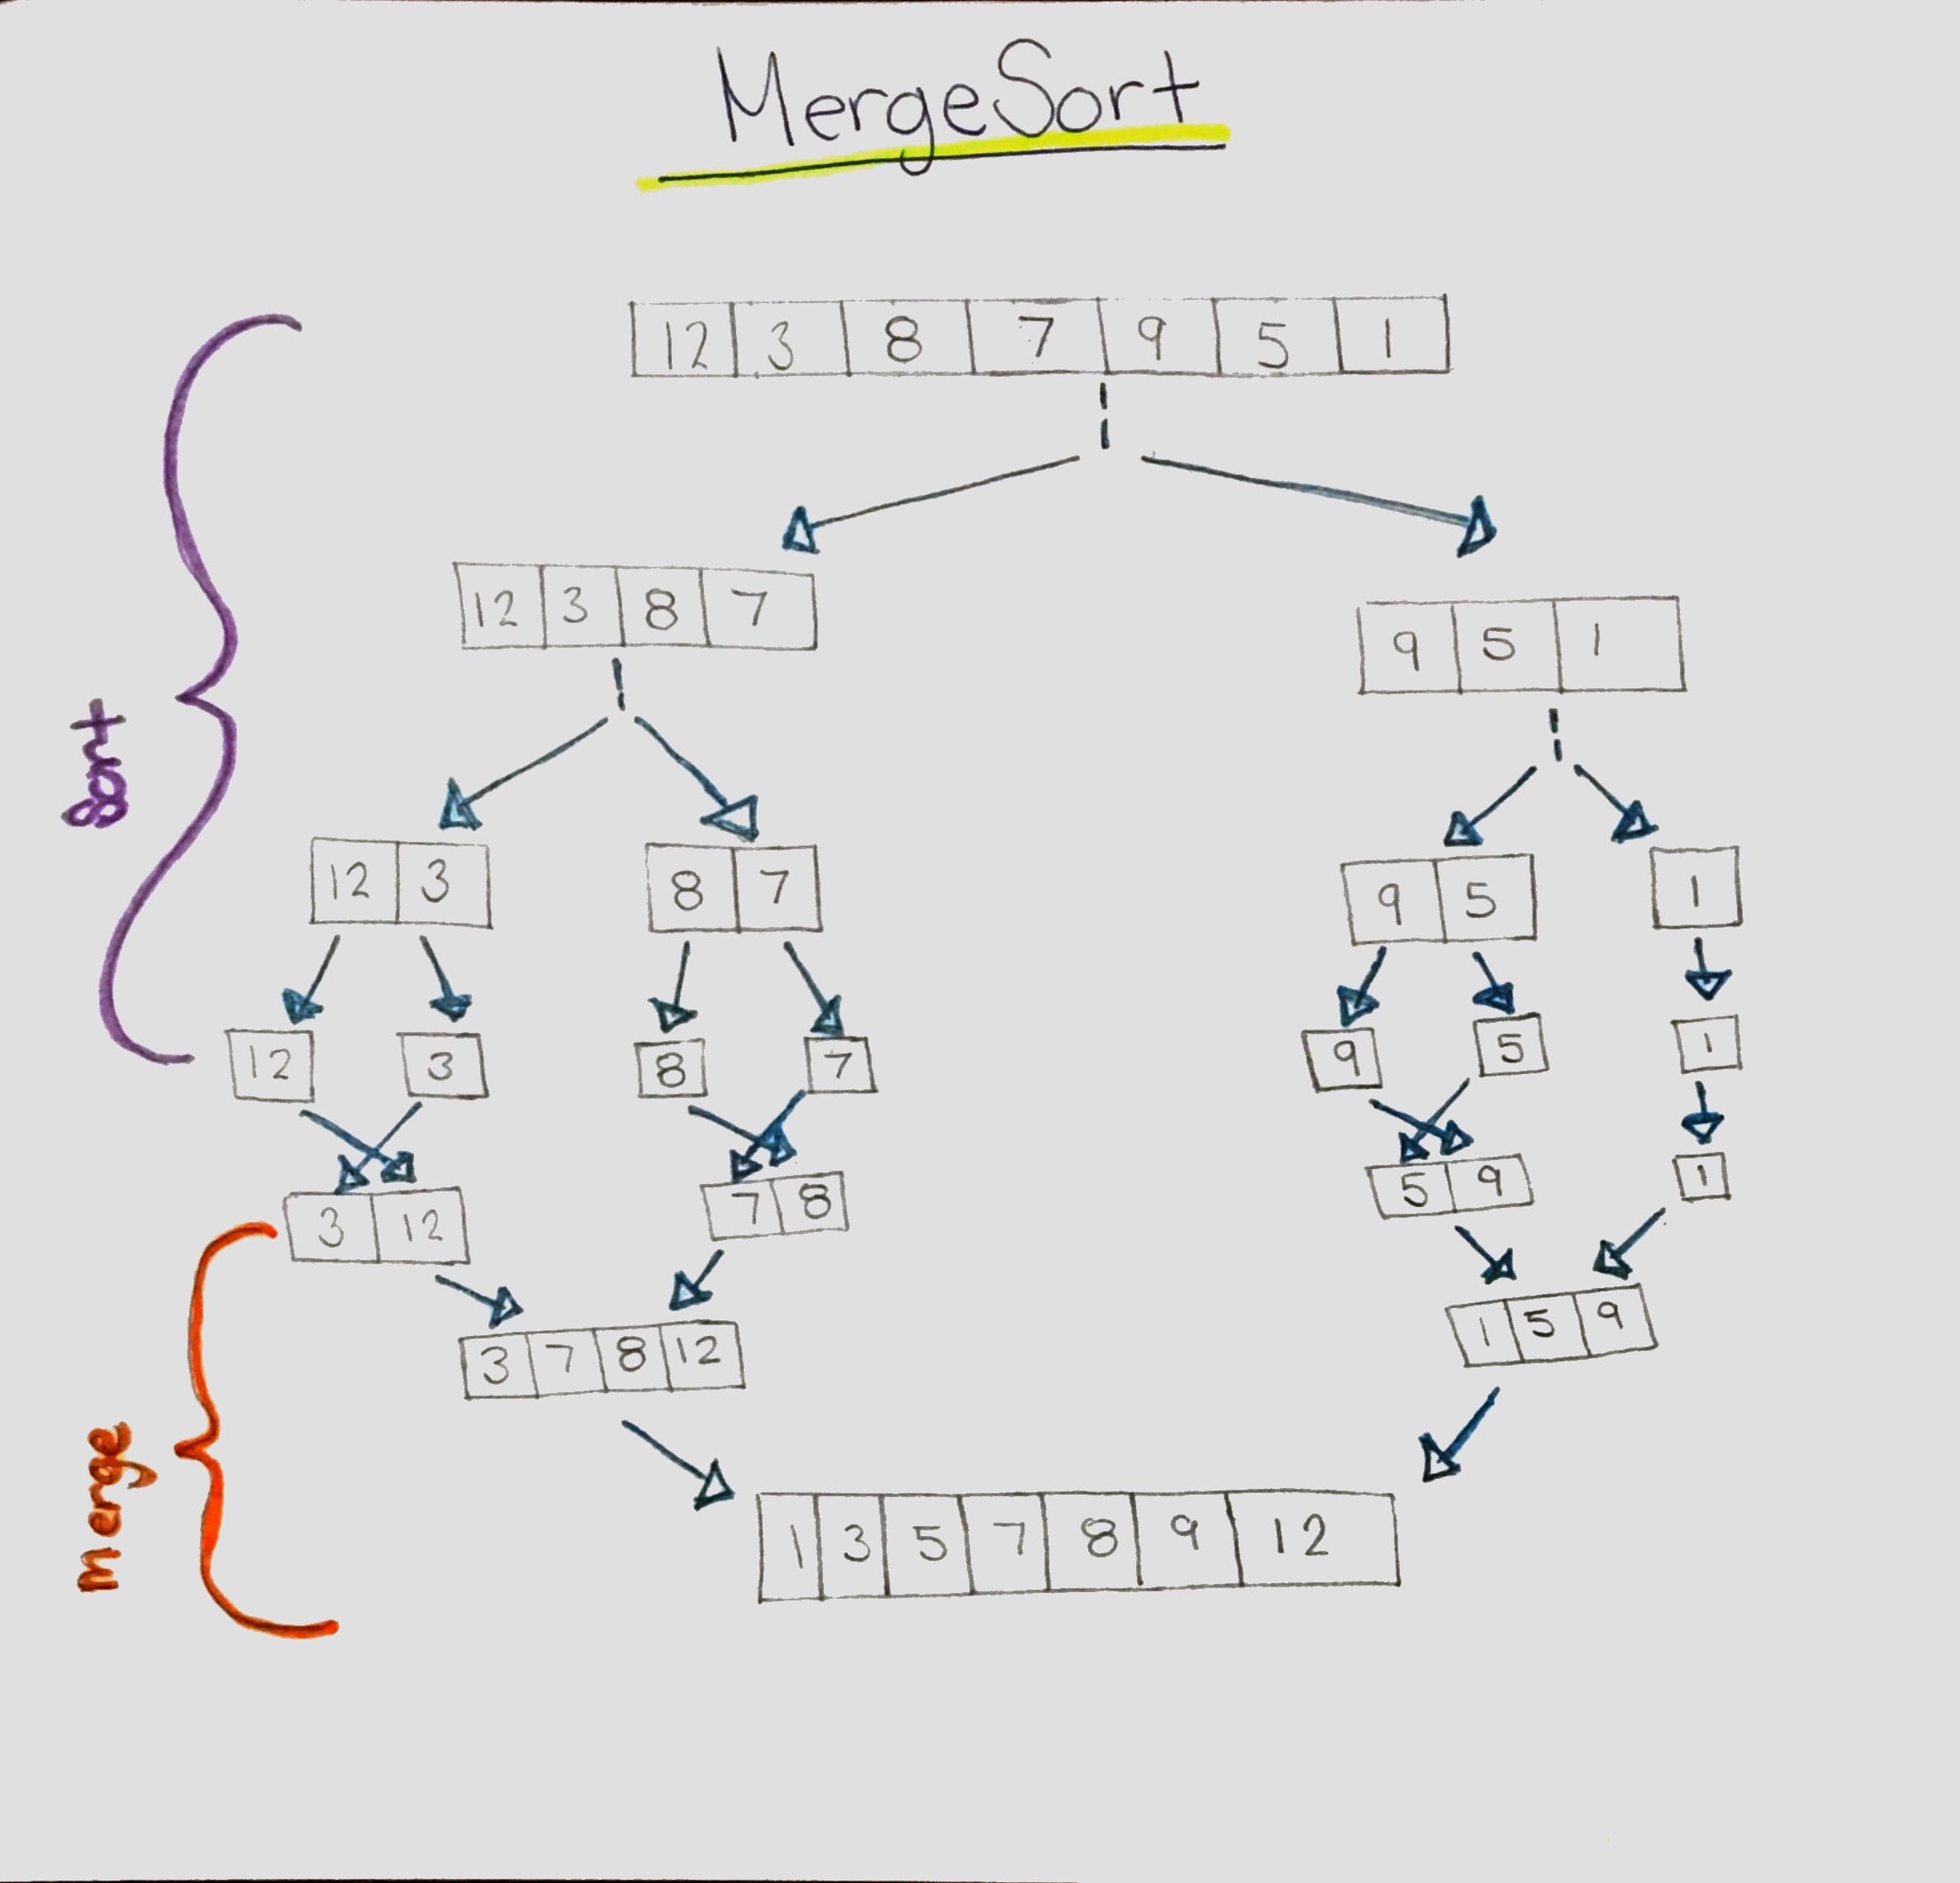 MergeSort
12 3 8 7 9 5 1
12 3 8 7
9 5 1
12 3
8 7
9 5
1
12
3
8
7
9
5
1
3 12
7 8
5 9
1
3 7 8 12
1 5 9
merge
1 3 5 7 8 9 12